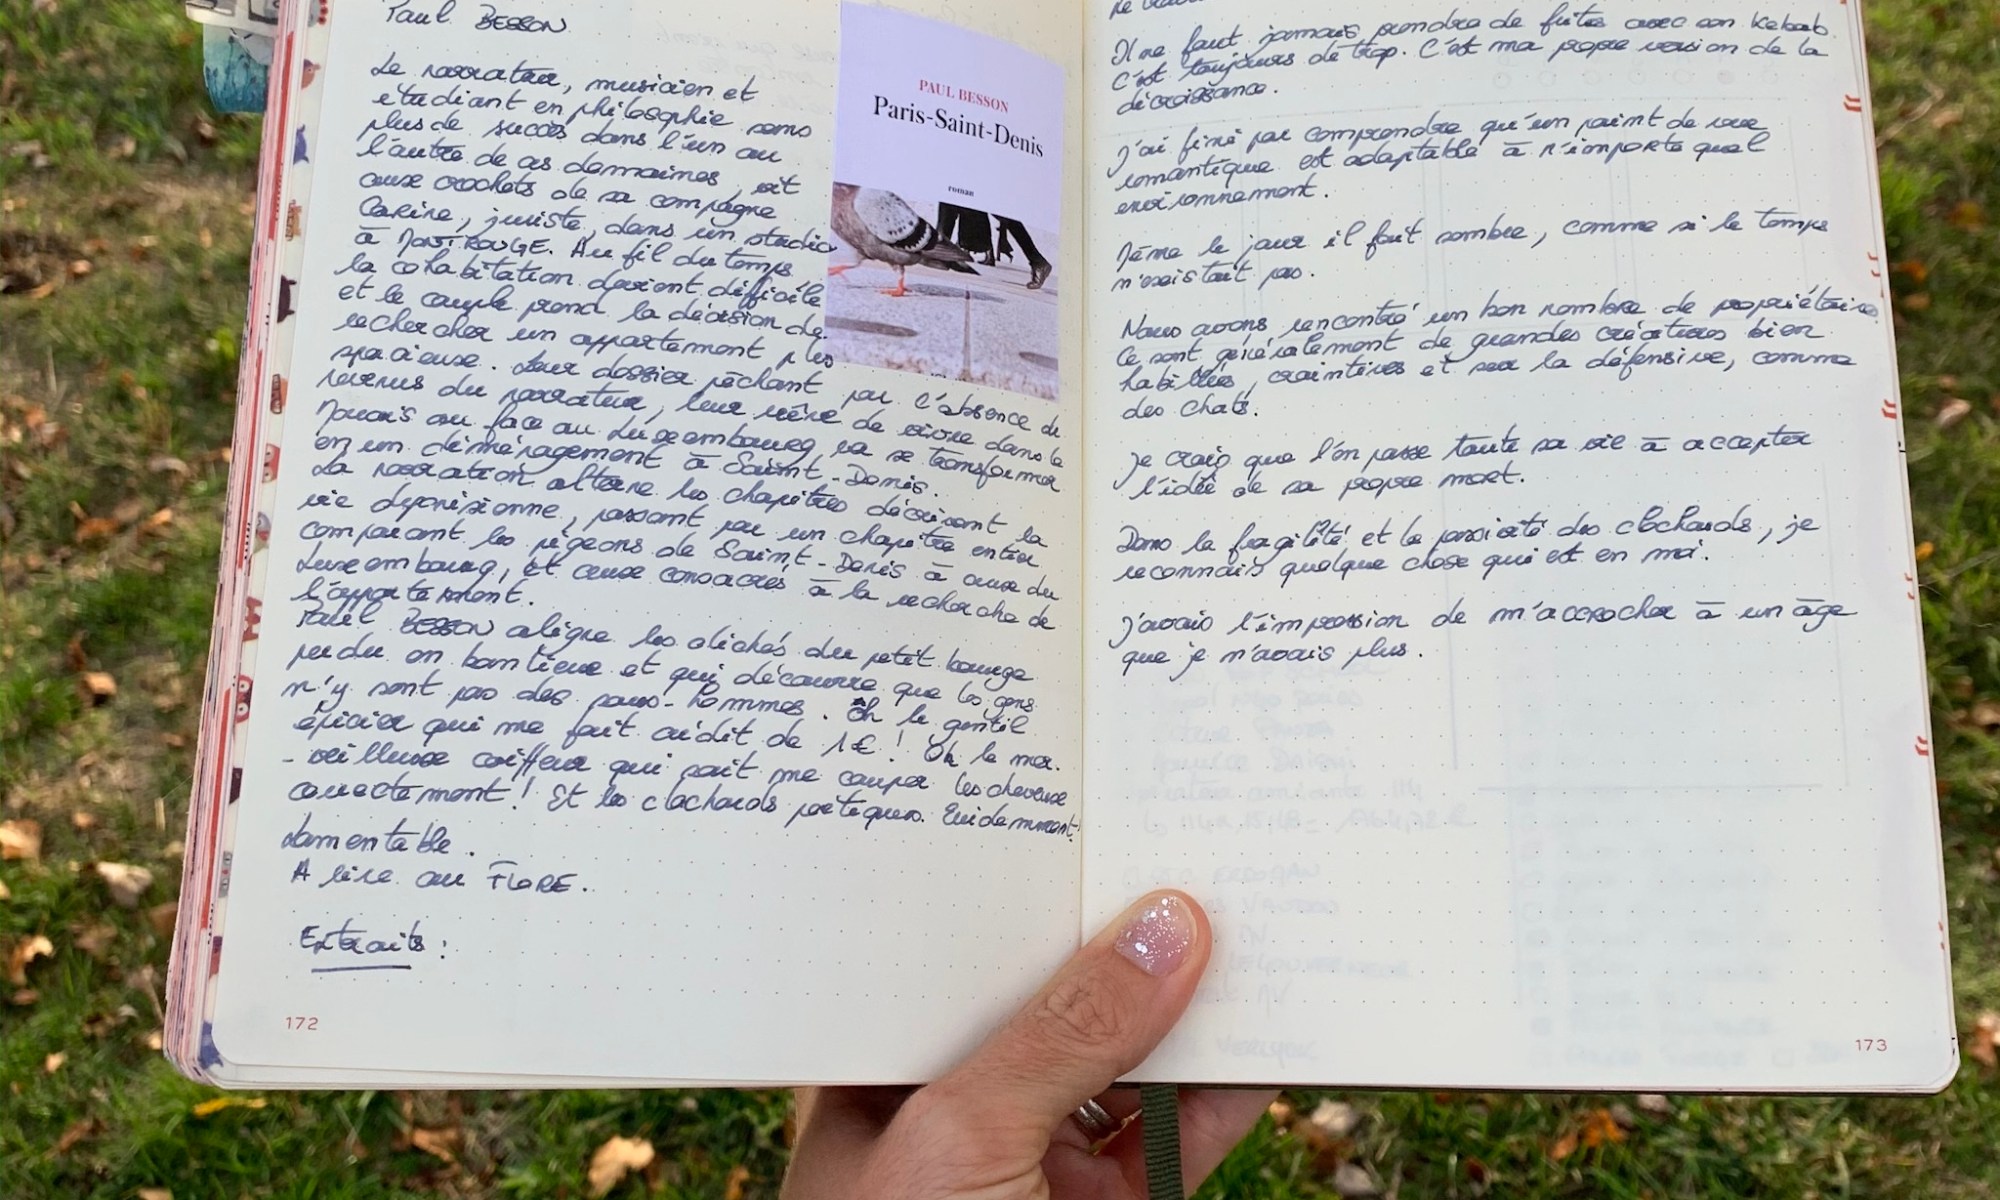 Paul BESSON
Le narrateur, musicien et
étudiant en philosophie sans
plus de succès dans l'un ou
l'autre de ces domaines, vit
aux crochets de sa compagne
Carine, juriste, dans un studio
à MONTROUGE. Au fil du temps
la cohabitation devient difficile
et le couple prend la décision de
rechercher un appartement plus
spacieux. Leur dossier pêchant par l'absence de
revenus du narrateur, leur rêve de vivre dans le
Marais ou face au Luxembourg va se transformer
en un déménagement à Saint-Denis.
La narration alterne les chapitres décrivant la
vie dyonisienne, passant par un chapitre entier
comparant les pigeons de Saint-Denis à ceux du
Luxembourg, et ceux consacrés à la recherche de
l'appartement.
Paul BESSON aligne les clichés du petit bourge
perdu en banlieue et qui découvre que les gens
n'y sont pas des sous-hommes. Oh le gentil
épicier qui me fait crédit de 1€ ! Oh le mer-
-veilleux coiffeur qui sait me couper les cheveux
correctement ! Et les clochards poétiques. Evidemment !
Lamentable.
A lire au FLORE.
Extraits :
172
PAUL BESSON
Paris-Saint-Denis
roman
Il ne faut jamais prendre de frites avec son kebab.
C'est toujours de trop. C'est ma propre version de la
décroissance.
J'ai fini par comprendre qu'un point de vue
romantique est adaptable à n'importe quel
environnement.
Même le jour il fait sombre, comme si le temps
n'existait pas.
Nous avons rencontré un bon nombre de propriétaires.
Ce sont généralement de grandes créatures bien
habillées, craintives et sur la défensive, comme
des chats.
Je crois que l'on passe toute sa vie à accepter
l'idée de sa propre mort.
Dans la fragilité et la passivité des clochards, je
reconnais quelque chose qui est en moi.
J'avais l'impression de m'accrocher à un âge
que je n'avais plus.
173